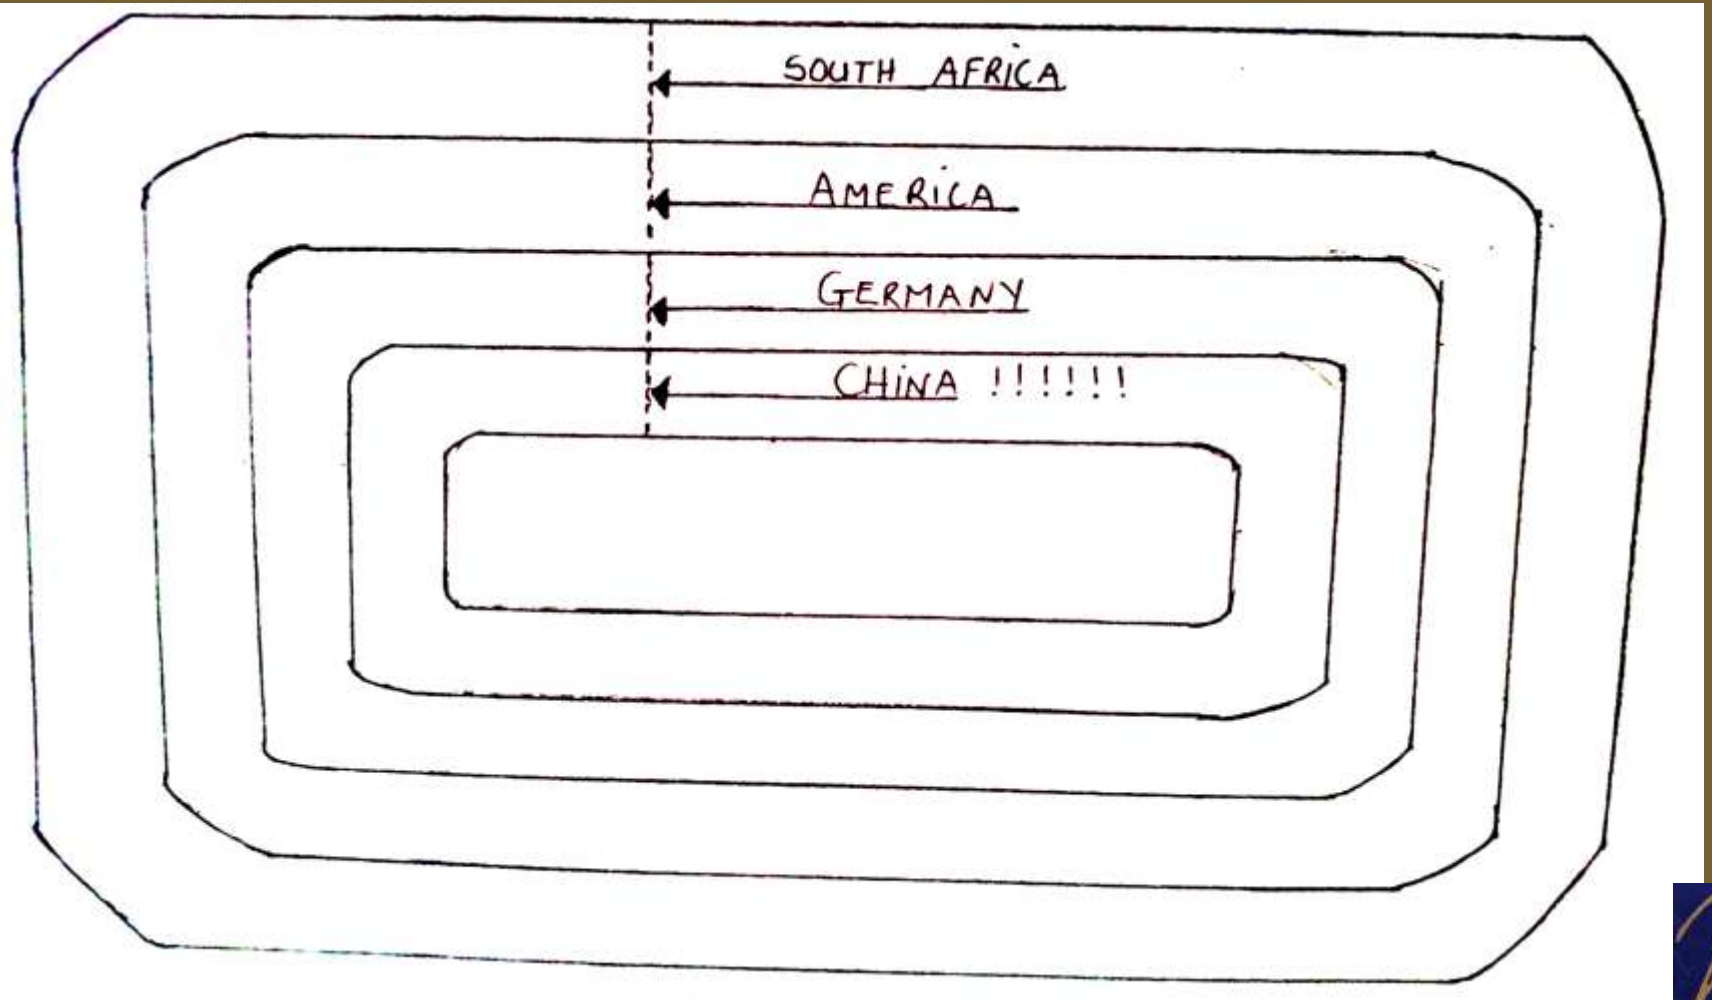 SOUTH AFRICA
AMERICA
GERMANY
CHINA !!!!!!